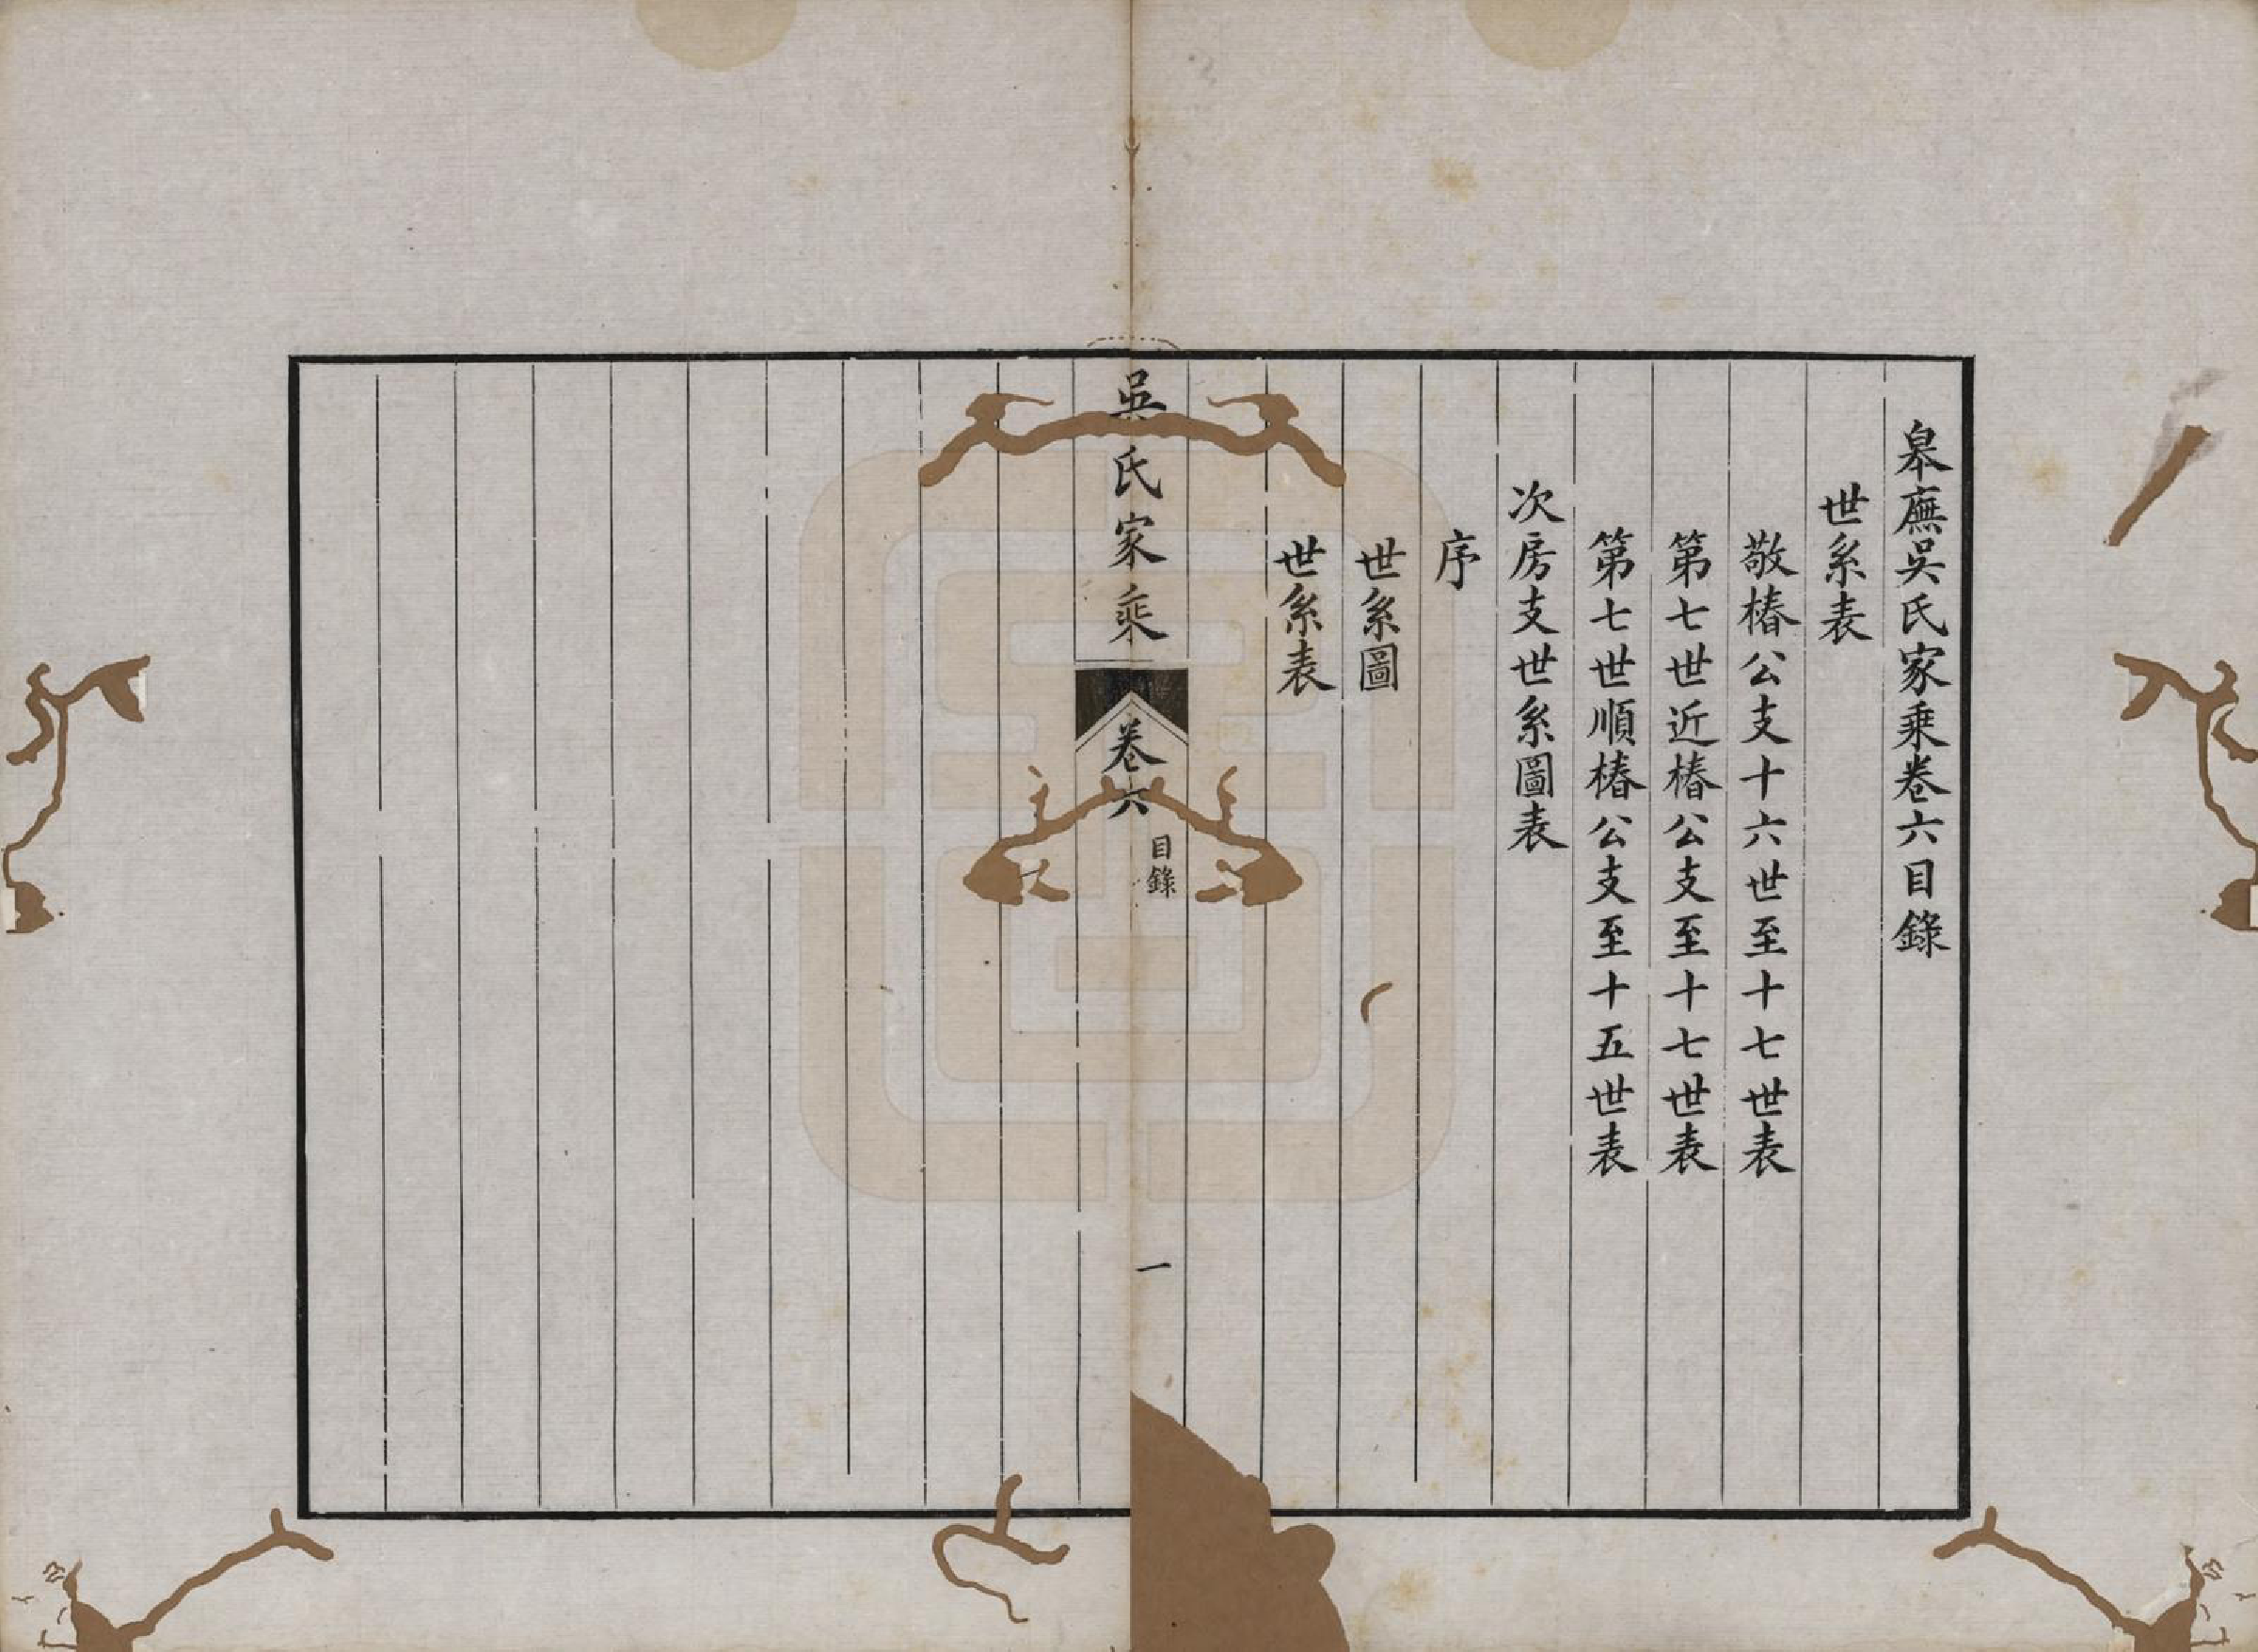 皋廡吳氏家乘卷六目錄
世系表
敬椿公支十六世至十七世表
第七世近椿公支至十七世表
第七世順椿公支至十五世表
次房支世系圖表
序
世系圖
世系表
吳氏家乘
卷六
目錄
一